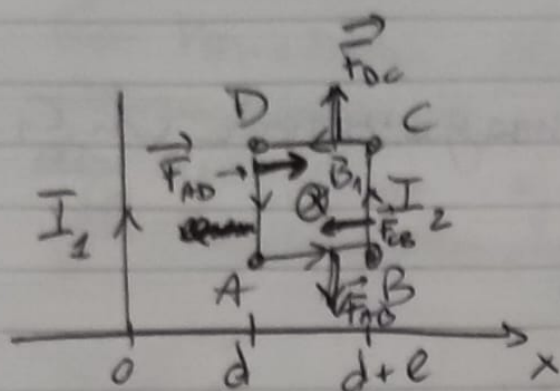 F_DC
D C
F_AD B_1
I_1 ⊗ I_2
F_CB
A F_AB B
0 d d+l x